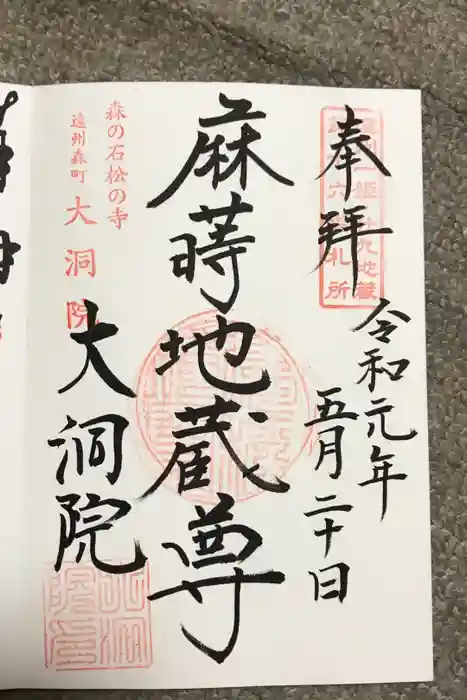 奉拝
令和元年
五月二十日
麻蒔地蔵尊
森の石松の寺
遠州森町 大洞院
大洞院